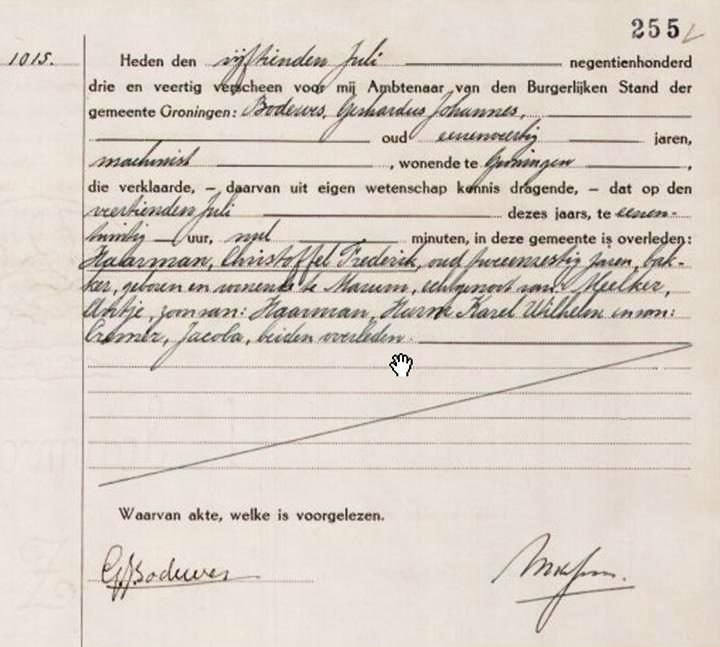 255
1015.
Heden den vijftienden Juli negentienhonderd
drie en veertig verscheen voor mij Ambtenaar van den Burgerlijken Stand der
gemeente Groningen: Bodewes, Gerhardus Johannes,
oud eenenveertig jaren,
machinist, wonende te Groningen,
die verklaarde, – daarvan uit eigen wetenschap kennis dragende, – dat op den
veertienden Juli dezes jaars, te eenen-
twintig uur, nul minuten, in deze gemeente is overleden:
Haarman, Christoffel Frederik, oud tweeenzestig jaren, bak-
ker, geboren en wonende te Marum, echtgenoot van: Meelker,
Antje, zoon van: Haarman, Harm Karel Wilhelm en van:
Cremer, Jacoba, beiden overleden.
Waarvan akte, welke is voorgelezen.
GJBodewes